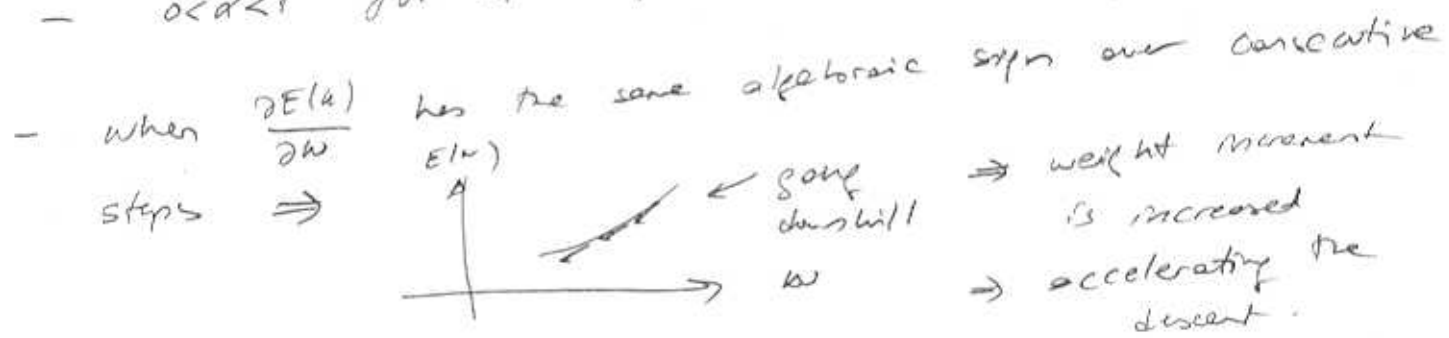 - 0<α<1
- when ∂E(w)/∂w has the same algebraic sign over consecutive
steps ⇒ E(w) w ← going downhill ⇒ weight increment is increased
⇒ accelerating the descent.